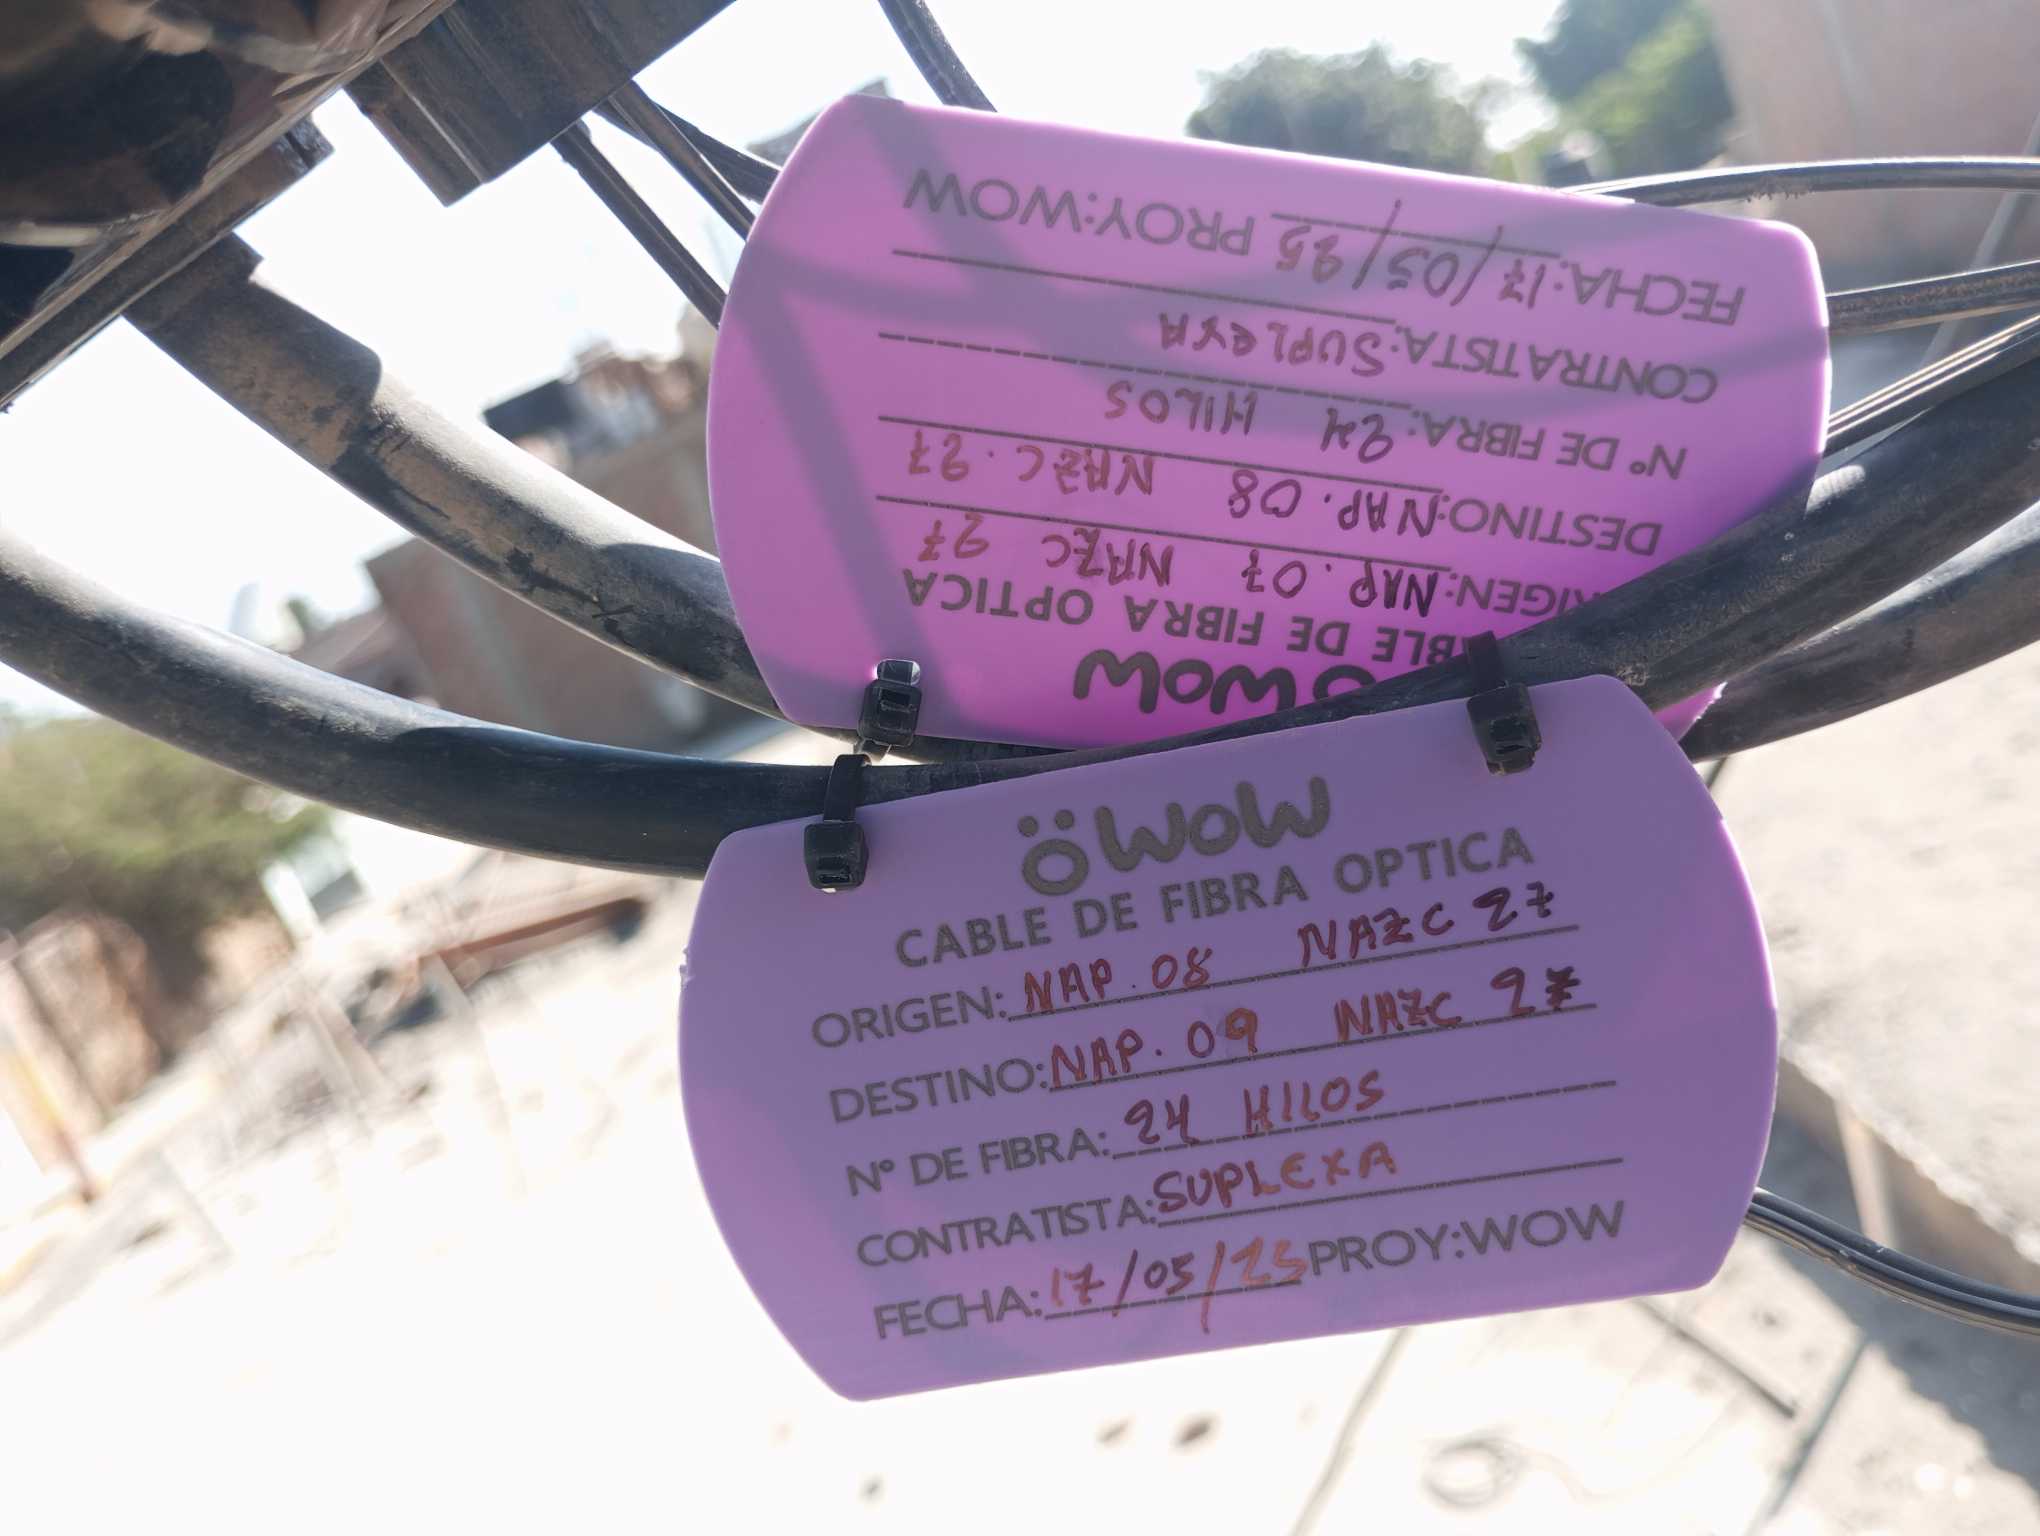 WOW
CABLE DE FIBRA OPTICA
ORIGEN: NAP. 08 NAZC 27
DESTINO: NAP. 09 NAZC 27
N° DE FIBRA: 24 HILOS
CONTRATISTA: SUPLEXA
FECHA: 17/05/25 PROY:WOW
WOW
CABLE DE FIBRA OPTICA
ORIGEN: NAP. 07 NAZC 27
DESTINO: NAP. 08 NAZC. 27
N° DE FIBRA: 24 HILOS
CONTRATISTA: SUPLEXA
FECHA: 17/05/25 PROY:WOW